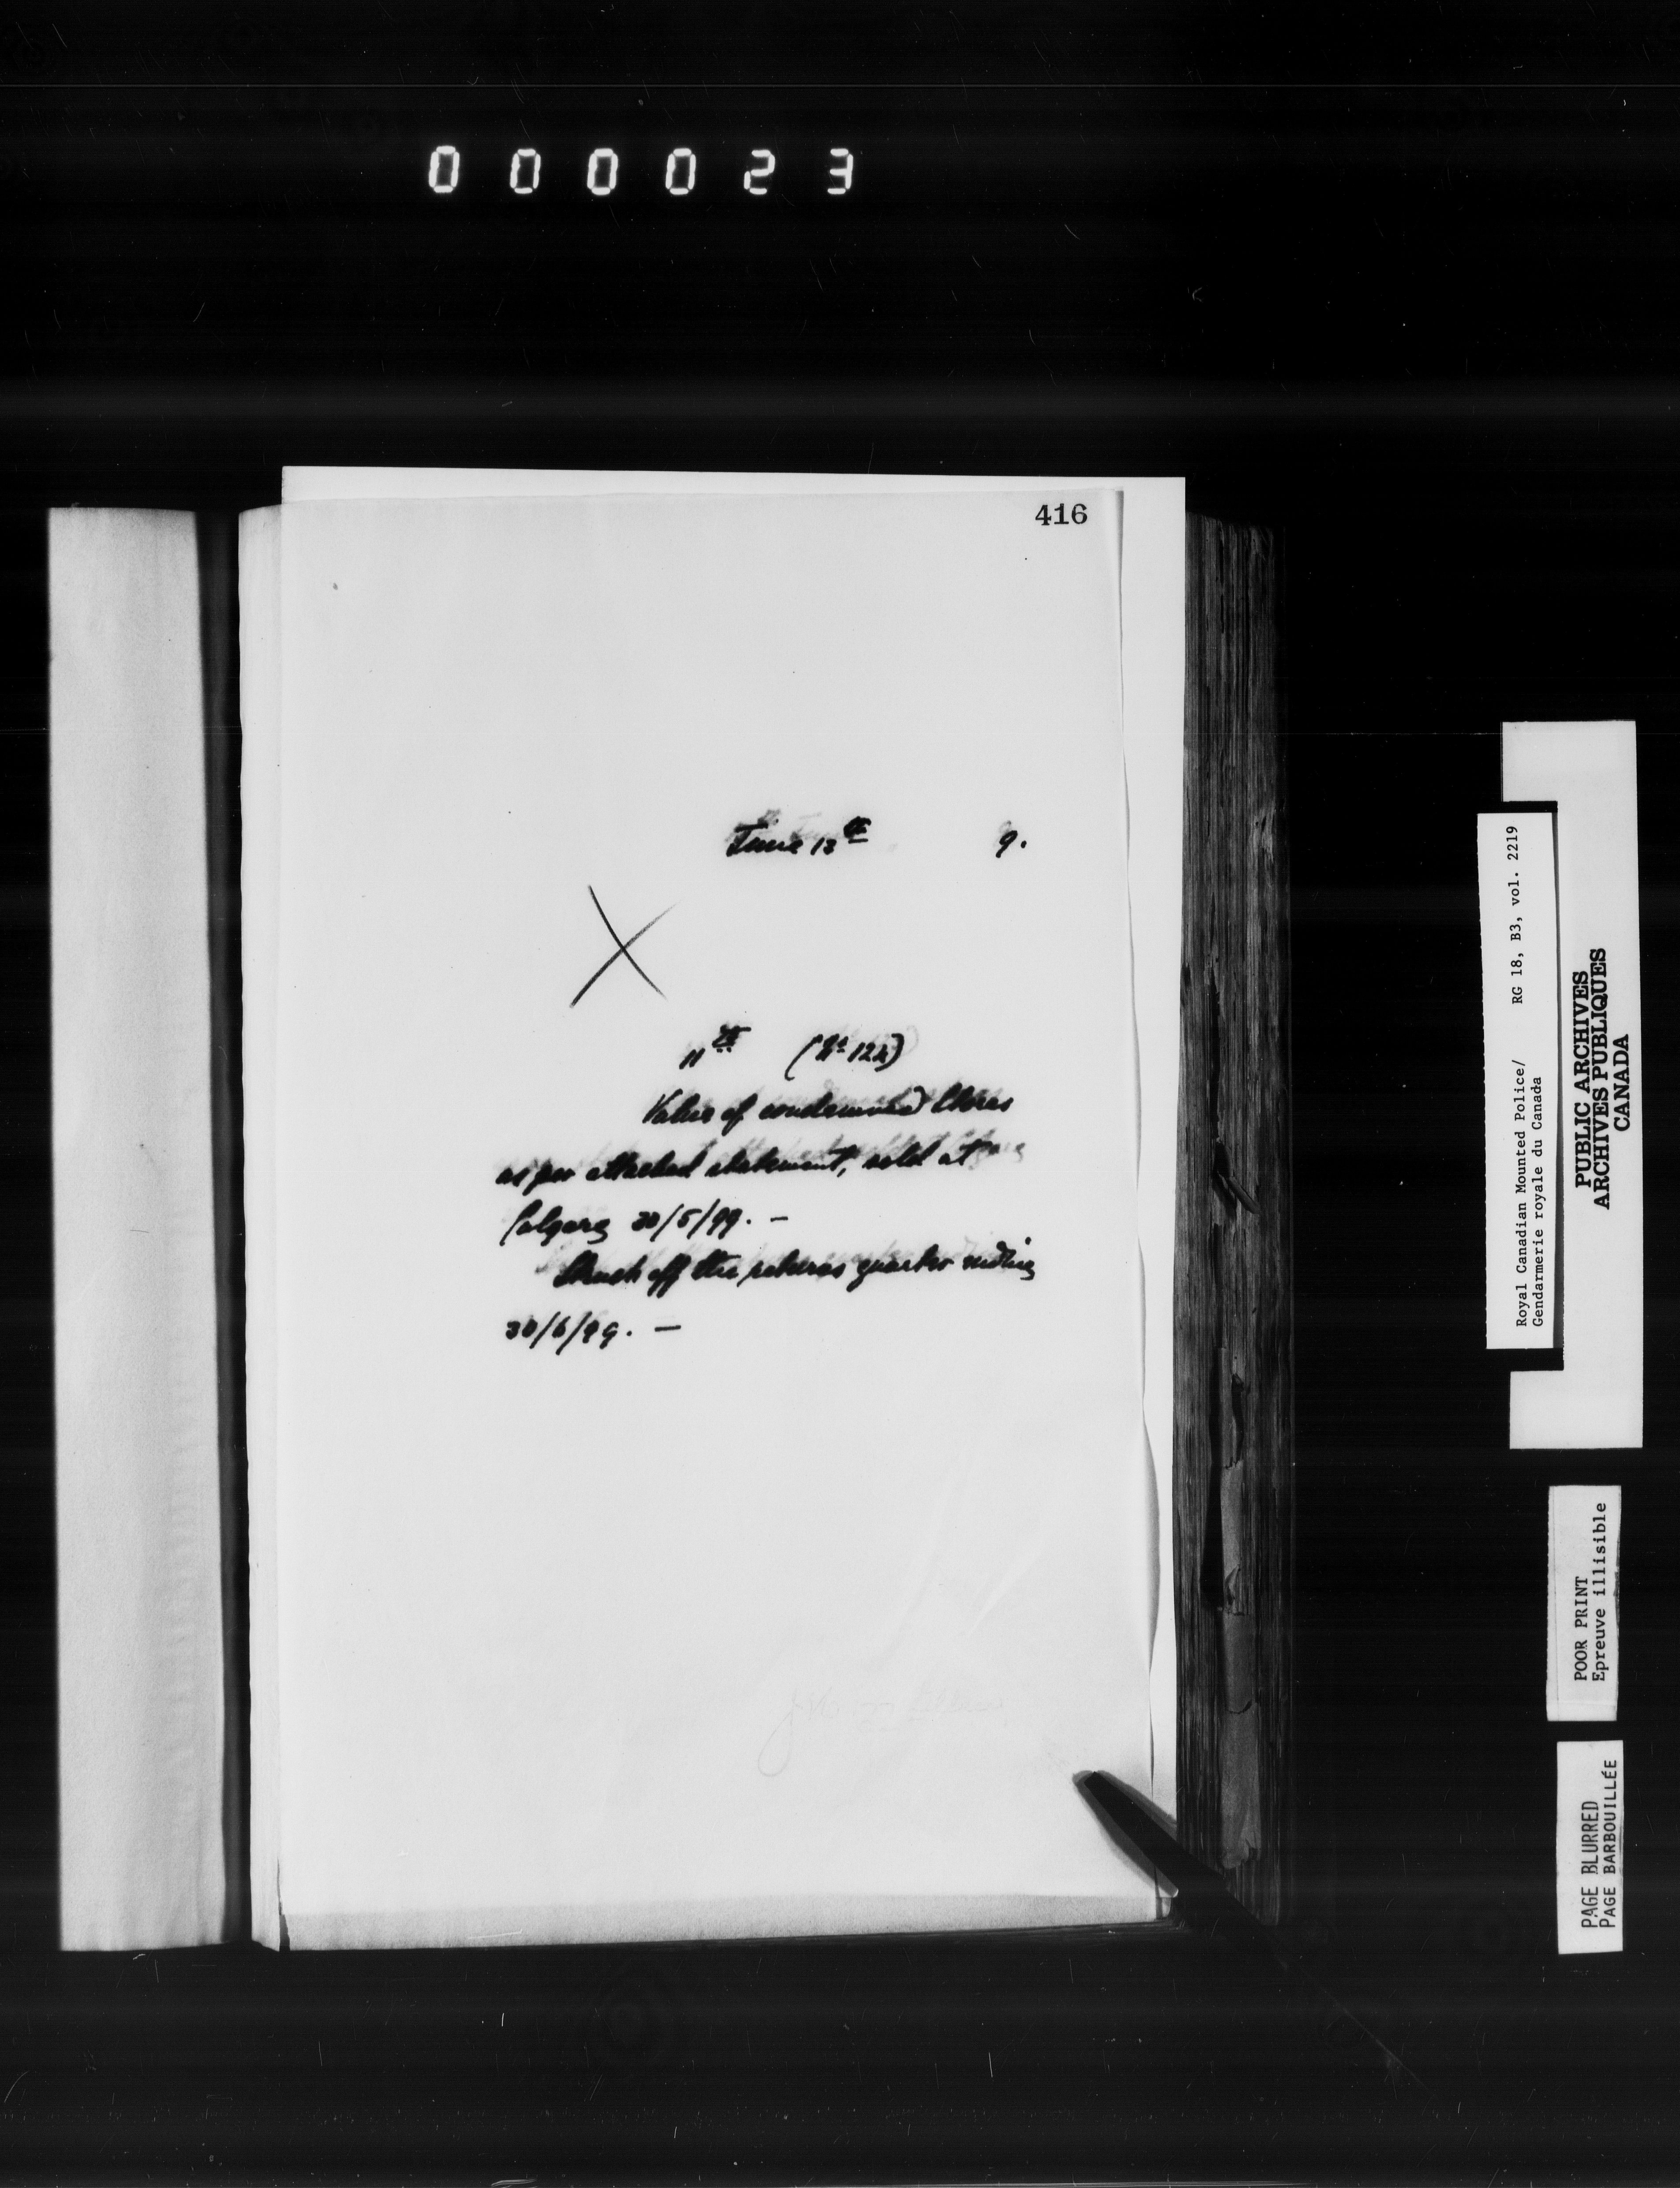 000023
416
June 13th 9.
11th (No 124)
Value of condemned Stores
as per attached statement, sold at
Calgary 30/5/99. —
Struck off the returns quarter ending
30/6/99. —
Royal Canadian Mounted Police/ RG 18, B3, vol. 2219
Gendarmerie royale du Canada
PUBLIC ARCHIVES
ARCHIVES PUBLIQUES
CANADA
POOR PRINT
Epreuve illisible
PAGE BLURRED
PAGE BARBOUILLÉE